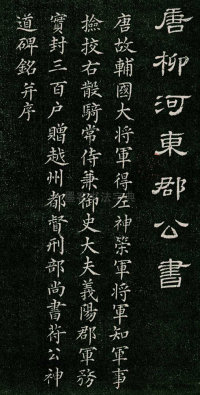 唐柳河東郡公書
唐故輔國大将軍得左神荣軍將軍知軍事
撿挍右散騎常侍兼御史大夫義陽郡軍務
寳封三百户贈越州都督刑部尚書苻公神
道碑銘并序